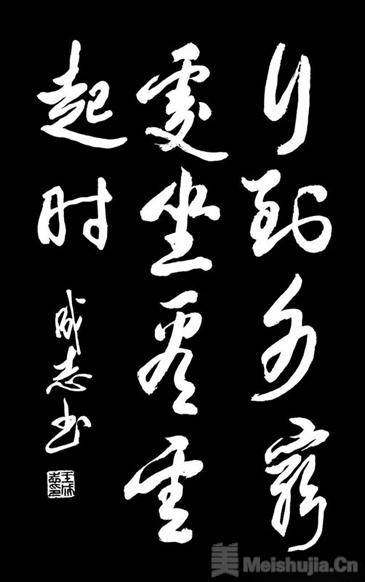 行到水窮
處坐看雲
起时
成志书
美 Meishujia.Cn